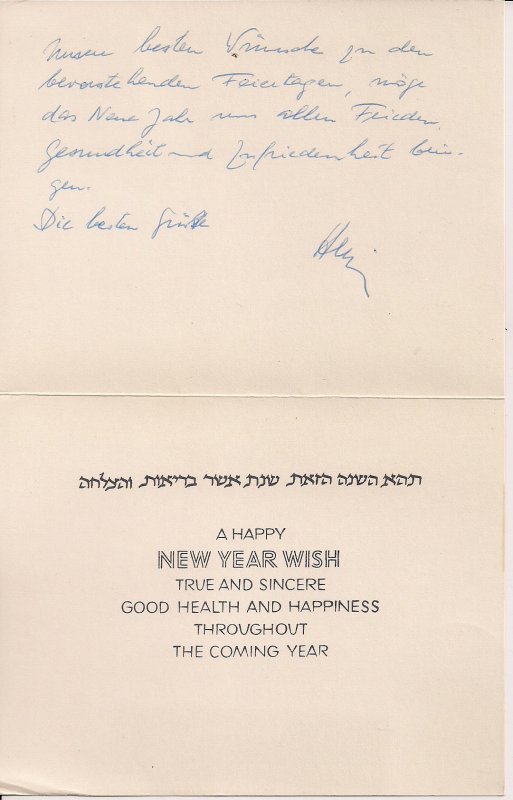 Unsere besten Wünsche zu den
bevorstehenden Feiertagen, möge
das Neue Jahr uns allen Frieden,
Gesundheit und Zufriedenheit brin-
gen.
Die besten Grüße
תהא השנה הזאת, שנת אשר בריאות, והצלחה
A HAPPY
NEW YEAR WISH
TRUE AND SINCERE
GOOD HEALTH AND HAPPINESS
THROUGHOUT
THE COMING YEAR